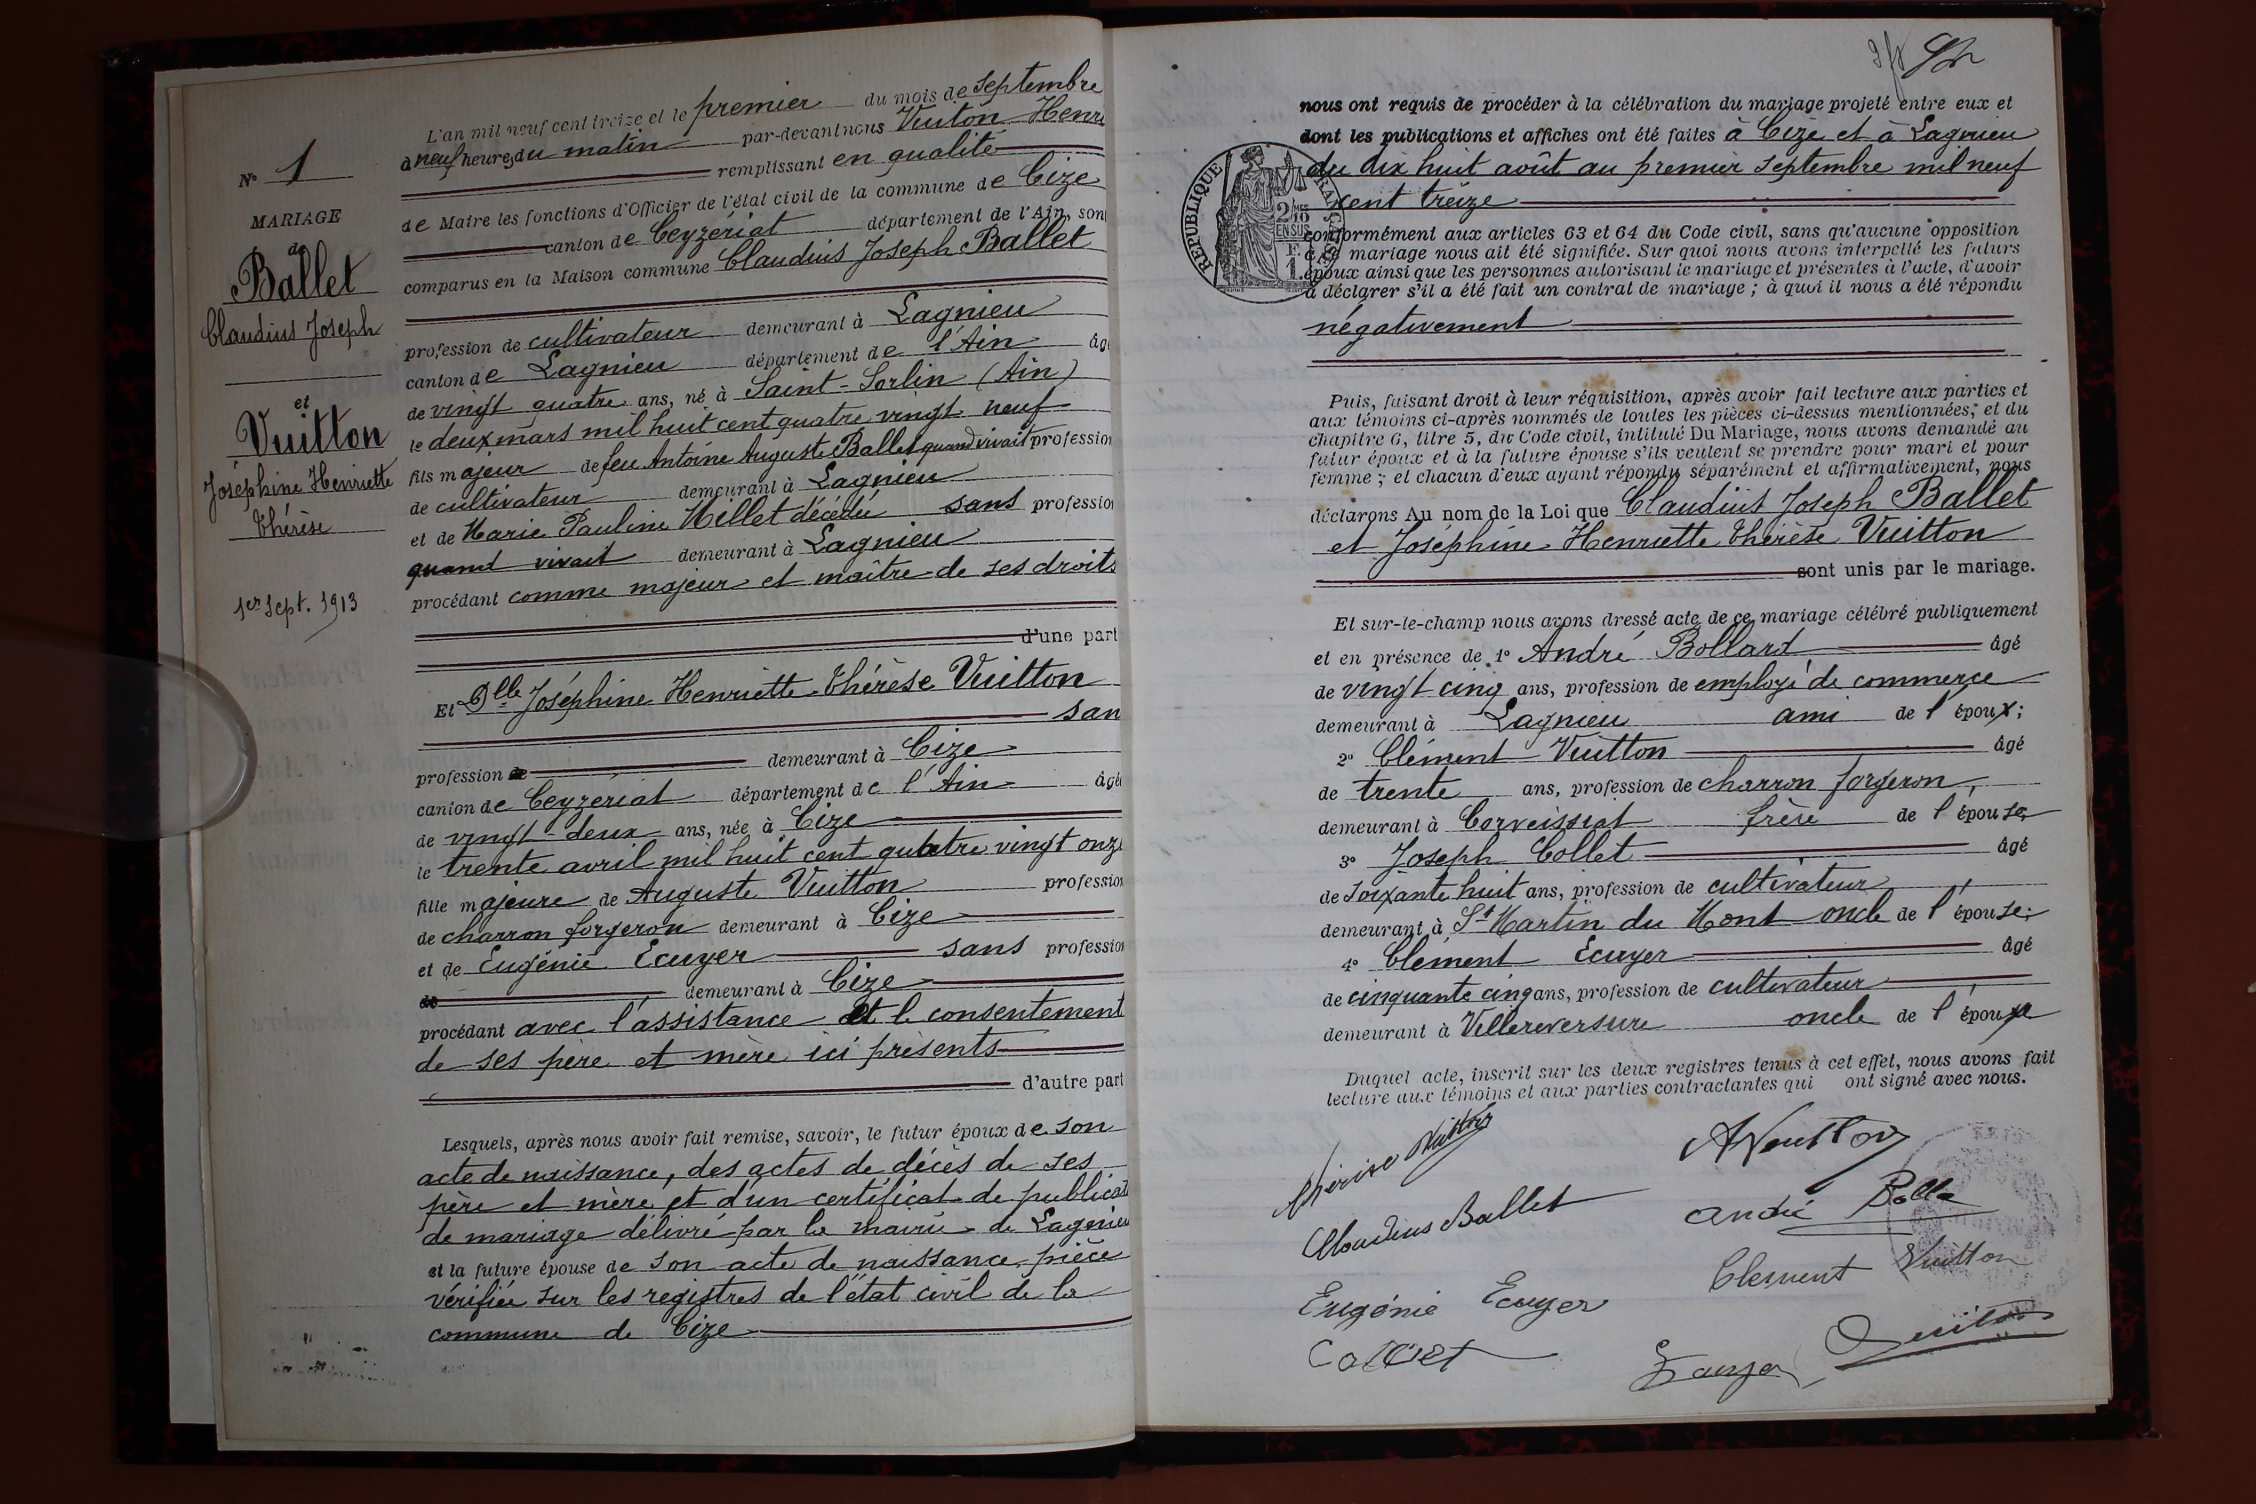 N° 1
MARIAGE
de
Ballet
Claudius Joseph
et
Vuitton
Joséphine Henriette
Thérèse
1er Sept. 1913
L'an mil neuf cent treize et le premier du mois de septembre
à neuf heures du matin par-devant nous Vuiton Henri
remplissant en qualité
de Maire les fonctions d'Officier de l'état civil de la commune de Cize
canton de Ceyzériat département de l'Ain, sont
comparus en la Maison commune Claudius Joseph Ballet
profession de cultivateur demeurant à Lagnieu
canton de Lagnieu département de l'Ain âgé
de vingt quatre ans, né à Saint-Sorlin (Ain)
le deux mars mil huit cent quatre vingt neuf
fils majeur de feu Antoine Auguste Ballet quand vivait profession
de cultivateur demeurant à Lagnieu
et de Marie Pauline Millet décédée sans profession
quand vivait demeurant à Lagnieu
procédant comme majeur et maître de ses droits
d'une part
Et Dlle Joséphine Henriette Thérèse Vuitton
san
profession de demeurant à Cize
canton de Ceyzériat département de l'Ain âgé
de vingt-deux ans, née à Cize
le trente avril mil huit cent quatre vingt onze
fille majeure de Auguste Vuitton profession
de charron forgeron demeurant à Cize
et de Eugénie Ecuyer sans profession
de demeurant à Cize
procédant avec l'assistance et le consentement
de ses père et mère ici présents
d'autre part
Lesquels, après nous avoir fait remise, savoir, le futur époux de son
acte de naissance, des actes de décès de ses
père et mère et d'un certificat de publicat
de mariage délivré par la mairie de Lagnieu
et la future épouse de son acte de naissance, pièce
vérifiée sur les registres de l'état civil de la
commune de Cize
nous ont requis de procéder à la célébration du mariage projeté entre eux et
dont les publications et affiches ont été faites à Cize et à Lagnieu
du dix huit août au premier septembre mil neuf
cent treize
REPUBLIQUE FRANÇAISE
2/10 MES EN SUS
1 F.
conformément aux articles 63 et 64 du Code civil, sans qu'aucune opposition
à ce mariage nous ait été signifiée. Sur quoi nous avons interpellé les futurs
époux ainsi que les personnes autorisant le mariage et présentes à l'acte, d'avoir
à déclarer s'il a été fait un contrat de mariage ; à quoi il nous a été répondu
négativement
Puis, faisant droit à leur réquisition, après avoir fait lecture aux parties et
aux témoins ci-après nommés de toutes les pièces ci-dessus mentionnées, et du
chapitre 6, titre 5, du Code civil, intitulé Du Mariage, nous avons demandé au
futur époux et à la future épouse s'ils veulent se prendre pour mari et pour
femme ; et chacun d'eux ayant répondu séparément et affirmativement, nous
déclarons Au nom de la Loi que Claudius Joseph Ballet
et Joséphine Henriette Thérèse Vuitton
sont unis par le mariage.
Et sur-le-champ nous avons dressé acte de ce mariage célébré publiquement
et en présence de 1° André Bollard âgé
de vingt cinq ans, profession de employé de commerce
demeurant à Lagnieu ami de l'époux;
2° Clément Vuitton âgé
de trente ans, profession de charron forgeron,
demeurant à Corveissiat frère de l'épouse,
3° Joseph Collet âgé
de soixante huit ans, profession de cultivateur
demeurant à St Martin du Mont oncle de l'épouse;
4° Clément Ecuyer âgé
de cinquante cinq ans, profession de cultivateur
demeurant à Villereversure oncle de l'épouse
Duquel acte, inscrit sur les deux registres tenus à cet effet, nous avons fait
lecture aux témoins et aux parties contractantes qui ont signé avec nous.
Thérèse Vuitton
AVuitton
Claudius Ballet
André
Clement Vuitton
Eugénie Ecuyer
Collet
Vuiton